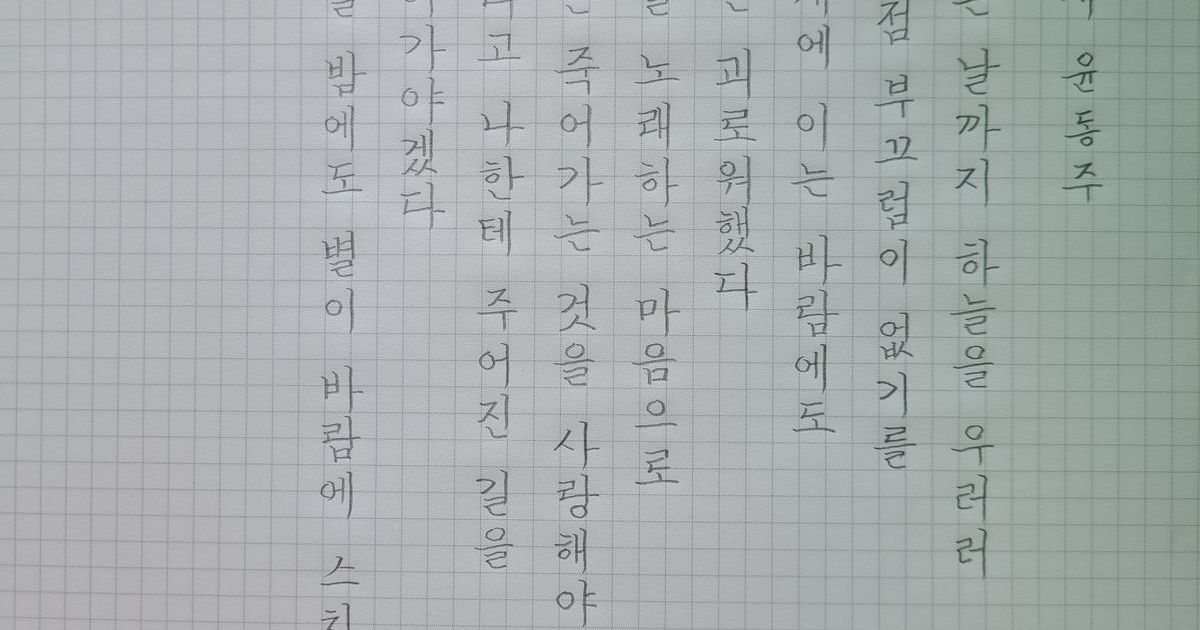 윤동주
날까지 하늘을 우러러
점 부끄럼이 없기를
에 이는 바람에도
괴로워했다
노래하는 마음으로
죽어가는 것을 사랑해야
고 나한테 주어진 길을
가야겠다
밤에도 별이 바람에 스치